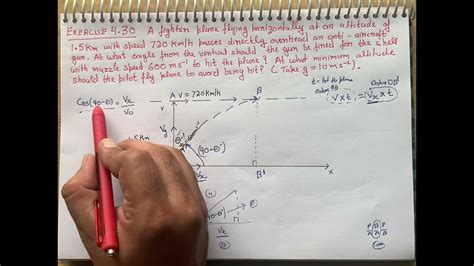 EXERCISE 4.30 A fighter plane flying horizontally at an altitude of
1.5 Km with speed 720 Km/h passes directly overhead an anti-aircraft
gun. At what angle from the vertical should the gun be fired for the shell
with muzzle speed 600 ms⁻¹ to hit the plane? At what minimum altitude
should the pilot fly plane to avoid being hit? (Take g = 10 ms⁻²).
Cos(90-θ) = Vx/V0
A V = 720 km/h
B
t = hit the plane
Distance AB
V × t
Distance OB'
Vx × t
Vy
5 Km
θ
(90-θ)
Vx
B'
x
Vx